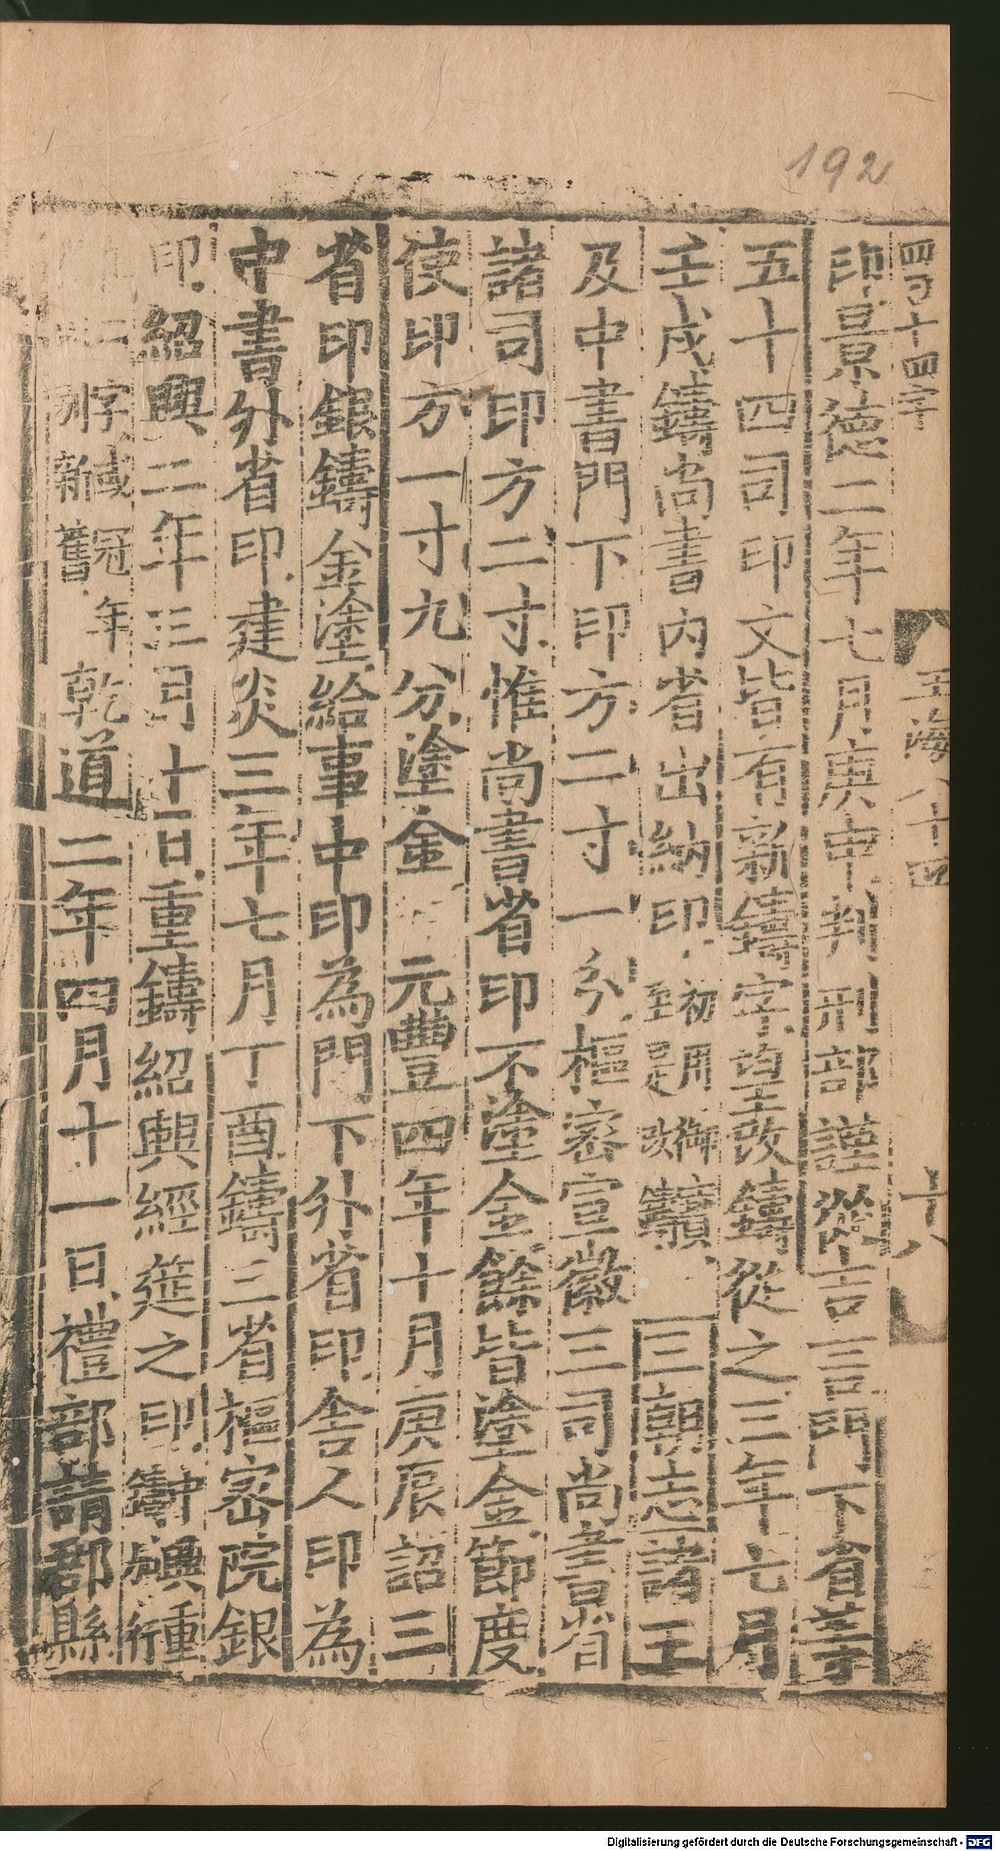 192
四百十四字
玉海八十四
十八
印景德二年七月庚申判刑部謹從吉言門下省等
五十四司印文皆有新鑄字望改鑄從之三年七月
壬戌鑄尚書內省出納印初用御
至是改鑄三朝志諸王
及中書門下印方二寸一分樞密宣徽三司尚書省
諸司印方二寸惟尚書省印不塗金餘皆塗金節度
使印方一寸九分塗金元豐四年十月庚辰詔三
省印銀鑄金塗給事中印為門下外省印舍人印為
中書外省印建炎三年七月丁酉鑄三省樞密院銀
印紹興二年三月十一日重鑄紹興經筵之印
二字或冠年
別新舊乾道二年四月十一日禮部請郡縣
Digitalisierung gefördert durch die Deutsche Forschungsgemeinschaft - DFG